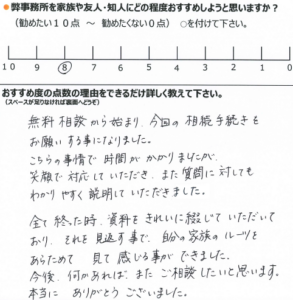 ●弊事務所を家族や友人・知人にどの程度おすすめしようと思いますか?
(勧めたい10点 ~ 勧めたくない0点) ○を付けて下さい。
10 9 8 7 6 5 4 3 2 1 0
おすすめ度の点数の理由をできるだけ詳しく教えて下さい。
(スペースが足りなければ裏面へどうぞ)
無料相談から始まり、今回の相続手続きを
お願いする事になりました。
こちらの事情で時間がかかりましたが、
笑顔で対応していただき、また質問に対しても
わかりやすく説明していただきました。
全て終った時、資料をきれいに綴じていただいて
おり、それを見返す事で、自分の家族のルーツを
あらためて見て感じる事ができました。
今後、何かあれば、またご相談したいと思います。
本当にありがとうございました。